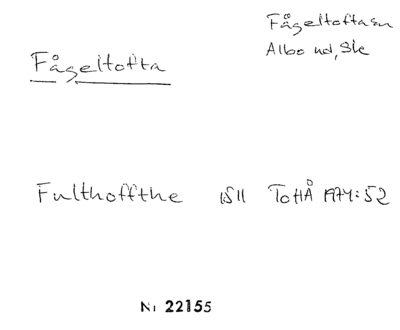 Fågeltofta sn
Albo hd, Sk
Fågeltofta
Fulthoffthe 1511 ToHÅ 1974:52
Nr 22155